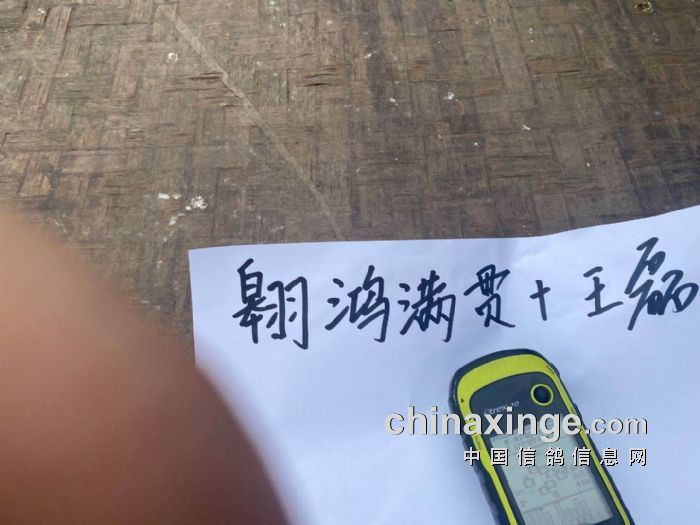 翱鸿满贯+王磊
etrex 10
chinaxinge.com
中国信鸽信息网